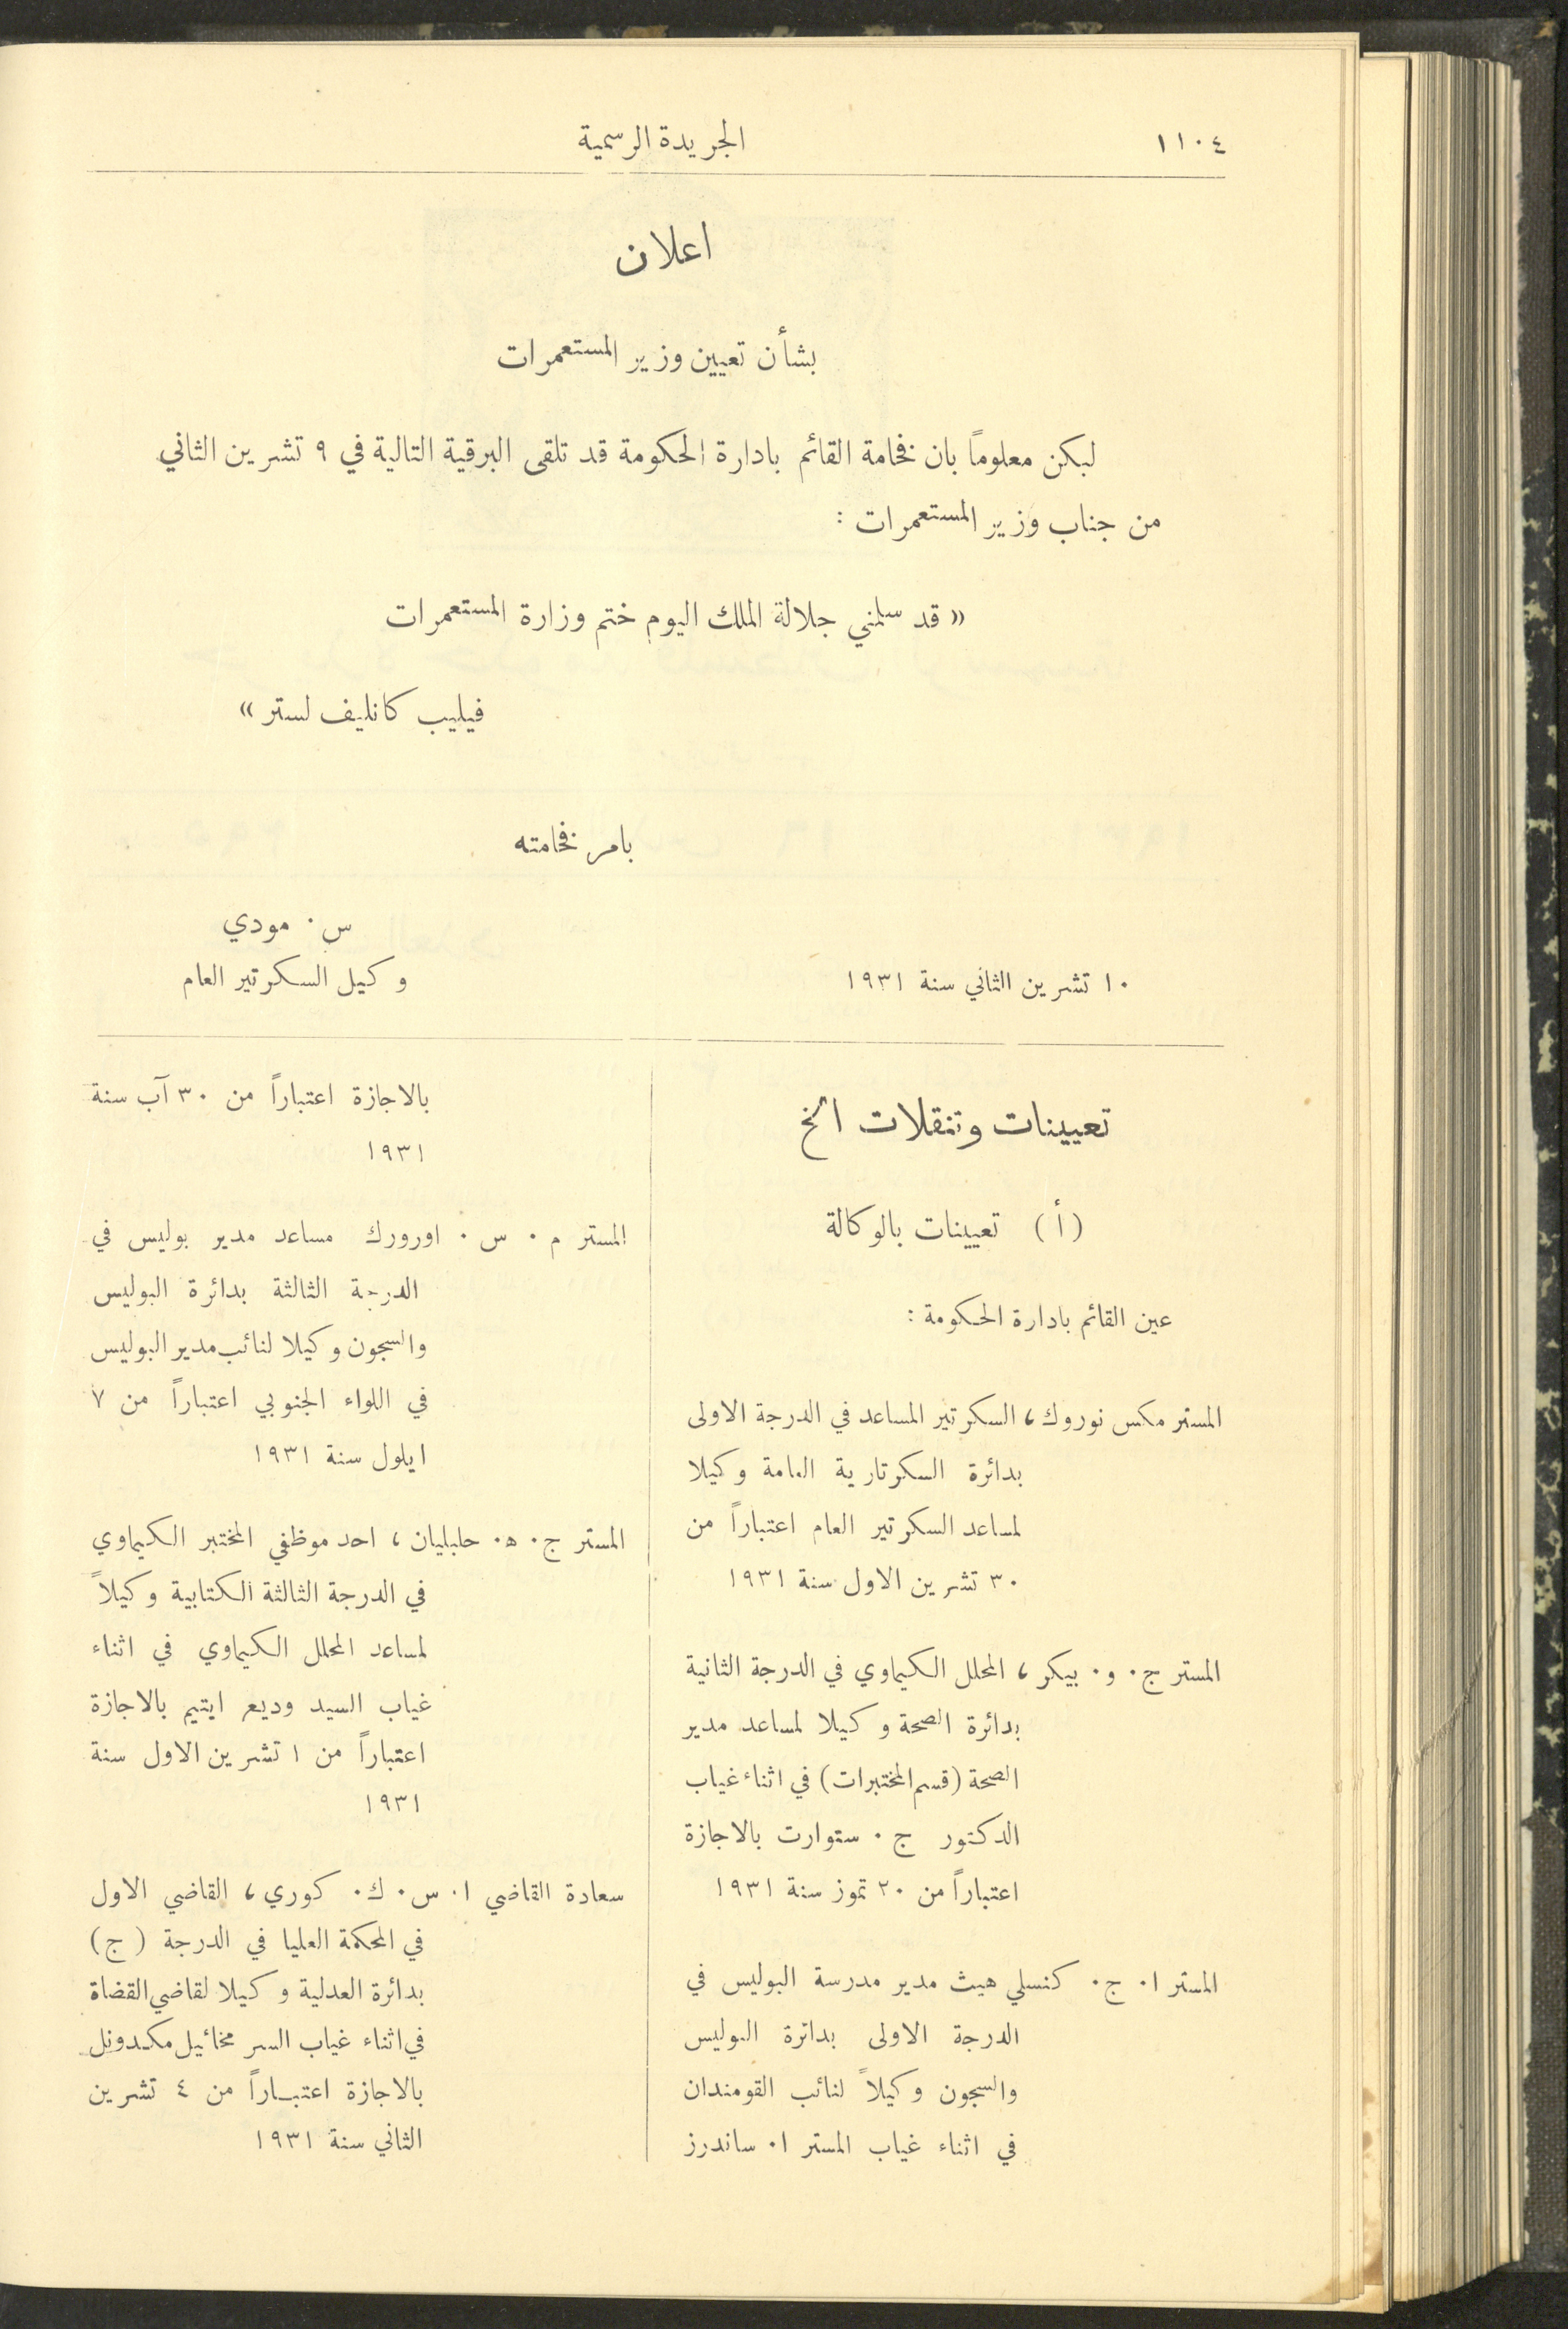 ١١٠٤
الجريدة الرسمية
اعلان
بشأن تعيين وزير المستعمرات
ليكن معلوماً بان فخامة القائم بادارة الحكومة قد تلقى البرقية التالية في ٩ تشرين الثاني
من جناب وزير المستعمرات :
« قد سلمني جلالة الملك اليوم ختم وزارة المستعمرات
فيليب كانليف لستر »
بامر فخامته
س٠ مودي
وكيل السكرتير العام
١٠ تشرين الثاني سنة ١٩٣١
تعيينات وتنقلات الخ
(أ) تعيينات بالوكالة
عين القائم بادارة الحكومة :
المستر مكس نوروك، السكرتير المساعد في الدرجة الاولى
بدائرة السكرتارية العامة وكيلا
لمساعد السكرتير العام اعتباراً من
٣٠ تشرين الاول سنة ١٩٣١
المستر ج٠ و٠ بيكر، المحلل الكيماوي في الدرجة الثانية
بدائرة الصحة وكيلا لمساعد مدير
الصحة (قسم المختبرات) في اثناء غياب
الدكتور ج٠ ستوارت بالاجازة
اعتباراً من ٢٠ تموز سنة ١٩٣١
المستر ا٠ ج٠ كنسلي هيث مدير مدرسة البوليس في
الدرجة الاولى بدائرة البوليس
والسجون وكيلاً لنائب القومندان
في اثناء غياب المستر ا٠ ساندرز
بالاجازة اعتباراً من ٣٠ آب سنة
١٩٣١
المستر م٠ س٠ اورورك مساعد مدير بوليس في
الدرجة الثالثة بدائرة البوليس
والسجون وكيلا لنائب مدير البوليس
في اللواء الجنوبي اعتباراً من ٧
ايلول سنة ١٩٣١
المستر ج٠ ه٠ حلبليان، احد موظفي المختبر الكيماوي
في الدرجة الثالثة الكتابية وكيلاً
لمساعد المحلل الكيماوي في اثناء
غياب السيد وديع ايتيم بالاجازة
اعتباراً من ١ تشرين الاول سنة
١٩٣١
سعادة القاضي ا٠ س٠ ك٠ كوري، القاضي الاول
في المحكمة العليا في الدرجة (ج)
بدائرة العدلية وكيلا لقاضي القضاة
في اثناء غياب السر مخائيل مكدونل
بالاجازة اعتباراً من ٤ تشرين
الثاني سنة ١٩٣١